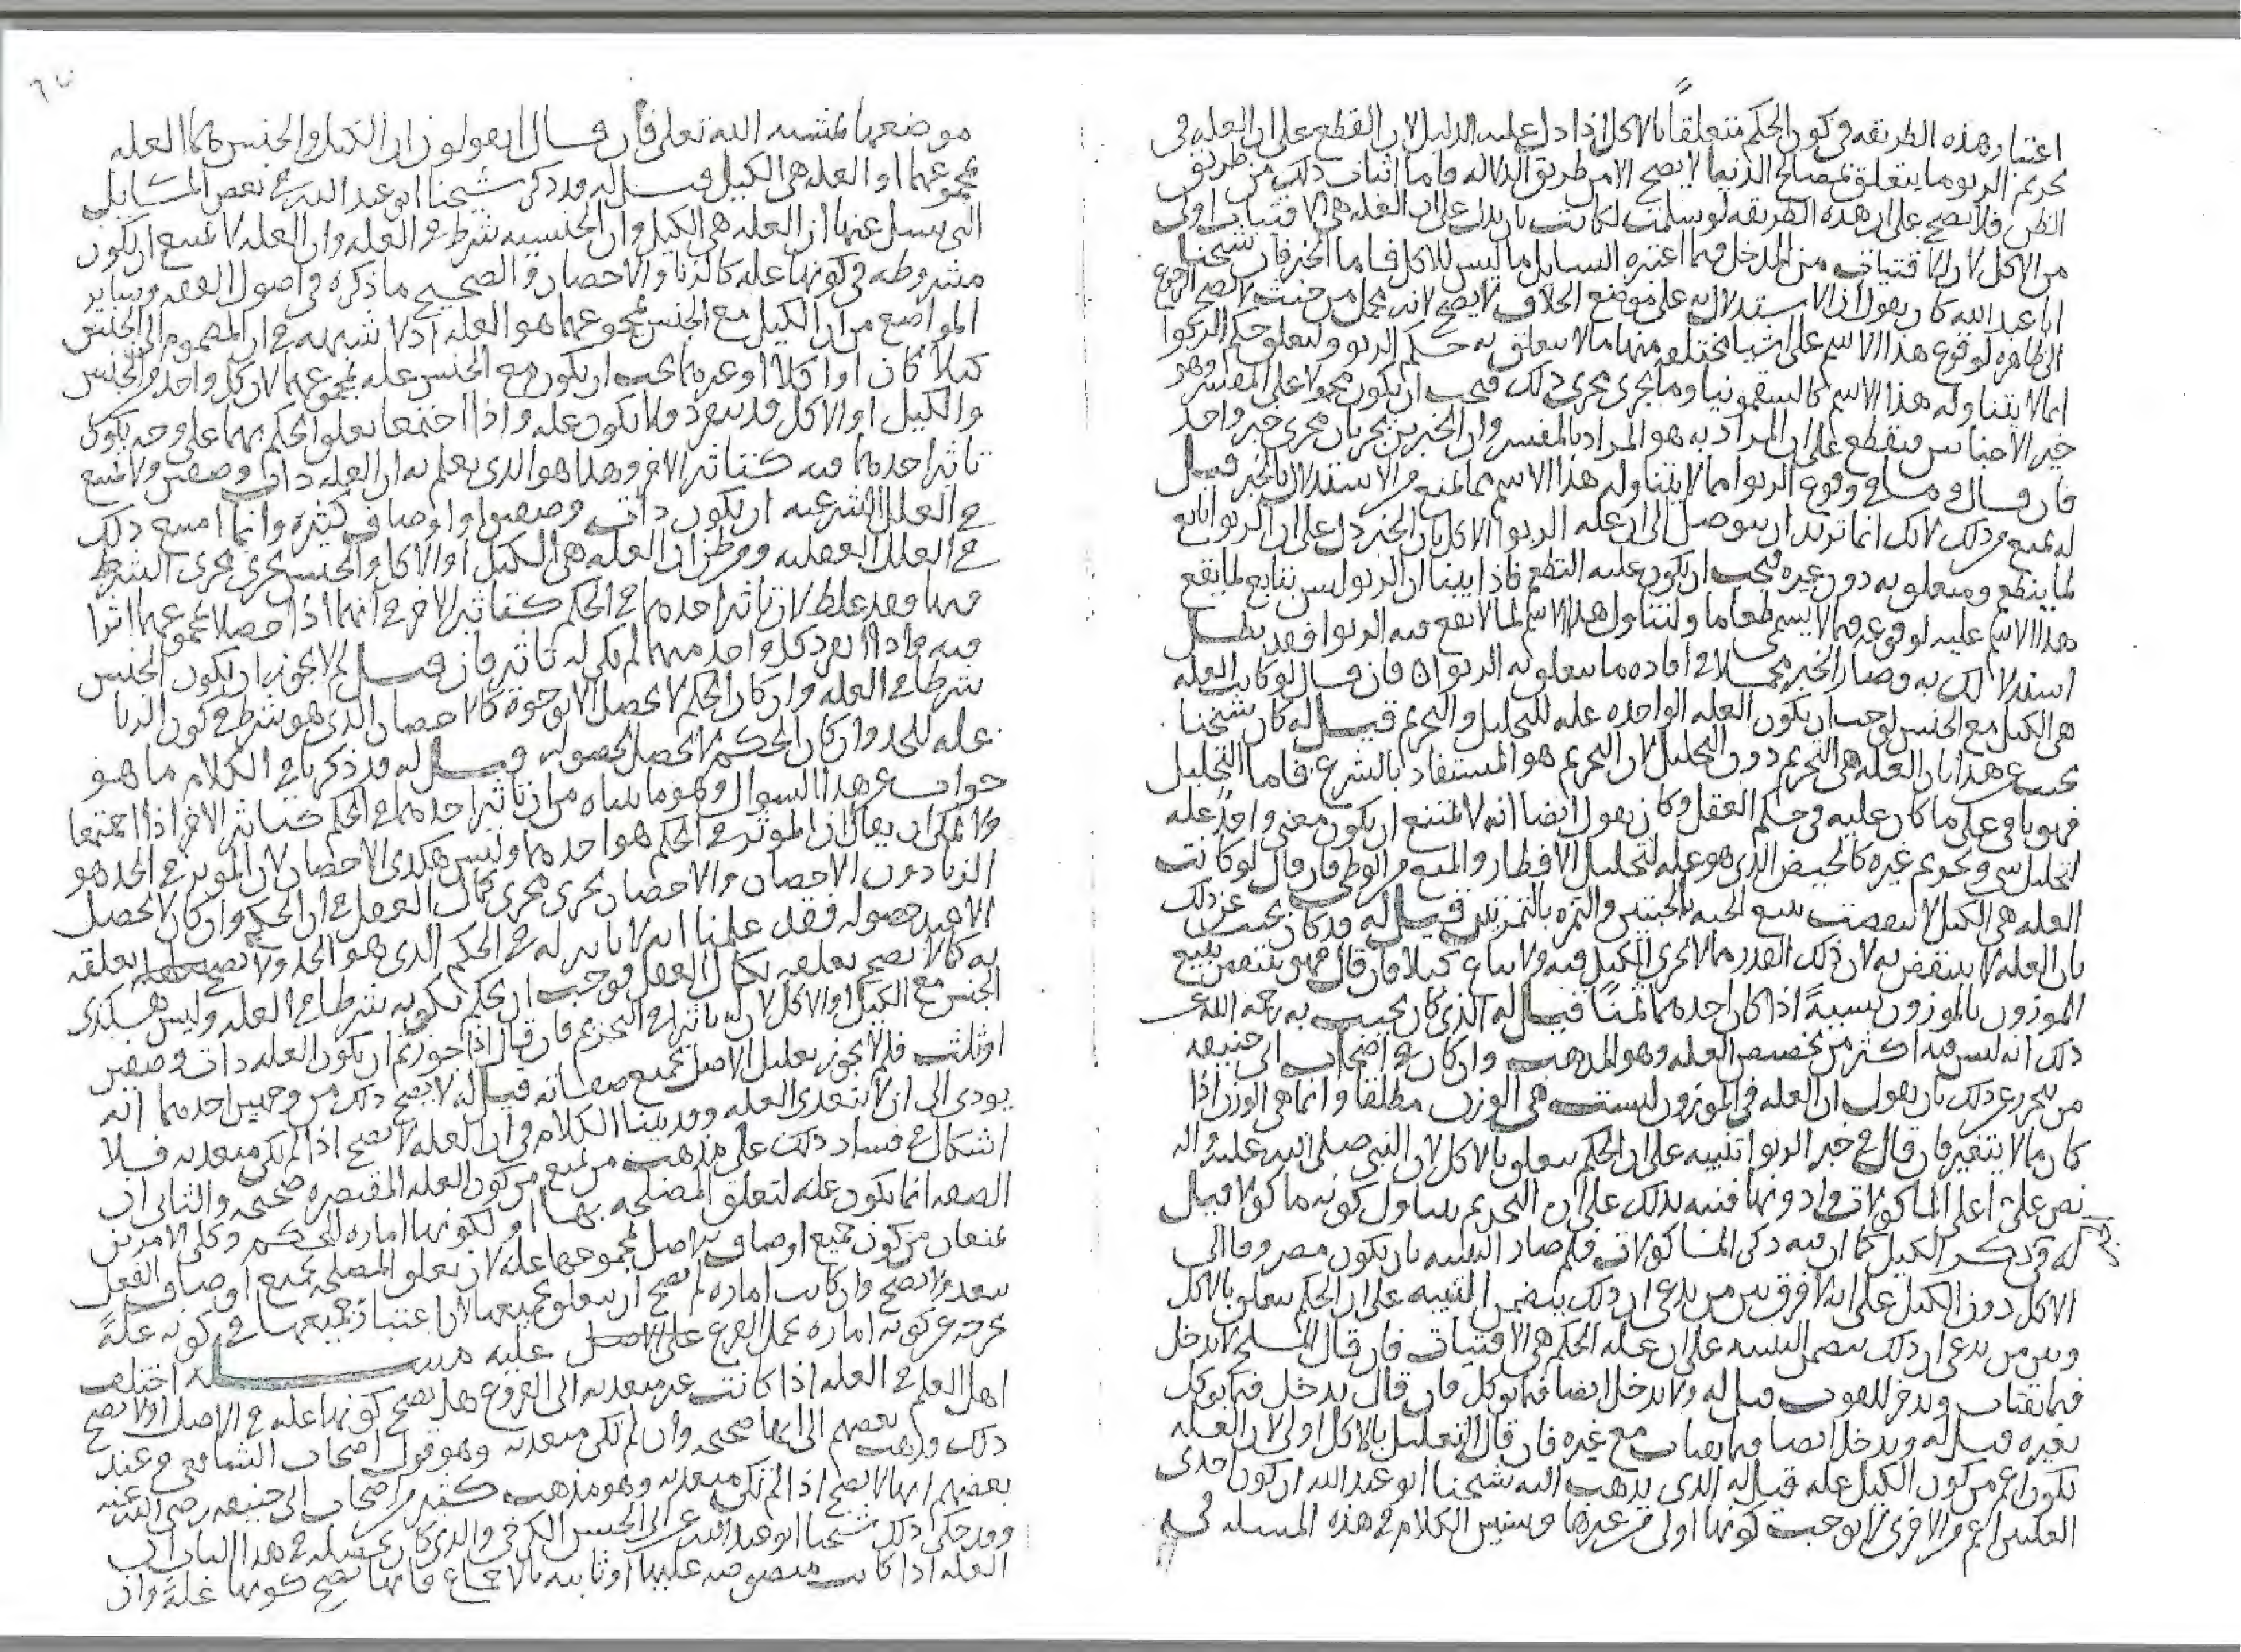 اعتبار هذه الطريقه في كون الحكم متعلقاً بالاكل اذا دل عليه الدليل لان القطع على ان العله في
تحريم الربو وما يتعلق بمصالح الدنيا لا يصح الا من طريق الدلاله فاما اثبات ذلك من طريق
الظن فلا يصح على ان هذه الطريقه لو سلمت لكانت بان يدل على ان العله هي الاقتيات اولى
من الاكل لان للاقتيات من المدخل فيما اعتبره السايل ما ليس للاكل فاما الخبر فان شيخنا
ابا عبد الله كان يقول ان الاستدلال به على موضع الخلاف لا يصح لانه مجمل من حيث لا يصح الرجوع
الى ظاهره لوقوع هذا الاسم على اشيا مختلفه منها ما لا يتعلق به حكم الربو ولتعلق حكم الربوا
بما لا يتناوله هذا الاسم كالسقمونيا وما يجرى مجرى ذلك فيجب ان يكون محمولا على المفسر وهو
خبر الاجناس فيقطع على ان المراد به هو المراد بالمفسر وان الخبرين يجريان مجرى خبر واحد
فان قال وما في وقوع الربوا مما لا يتناوله هذا الاسم مما يمنع من الاستدلال بالخبر قيل
له يمنع من ذلك لانك انما تريد ان تتوصل الى ان عله الربوا الاكل بان الخبر دل على ان الربوا تابع
لما يطعم ومتعلق به دون غيره فيجب ان يكون عليه الطعم فاذا بينا ان الربو ليس بتابع لما يقع
هذا الاسم عليه لوقوعه فيما لا يسمى طعاما ولتناول هذا الاسم لما لا يقع فيه الربوا فقد بطل
استدلالك به وصار الخبر مجملا في افاده ما يتعلق به الربوا فان قال لو كانت العله
هي الكيل مع الجنس لوجب ان يكون العله الواحده عله للتحليل والتحريم قيل له كان شيخنا
يجيب عن هذا بان العله هي التحريم دون التحليل لان التحريم هو المستفاد بالشرع فاما التحليل
فهو باق على ما كان عليه في حكم العقل وكان يقول ايضا انه لا يمتنع ان يكون معنى واحد عله
لتحليل شي وتحريم غيره كالحيض الذي هو عله لتحليل الافطار والمنع من الوطى فان قال لو كانت
العله هي الكيل لانتقضت ببيع الحبه بالحبتين والتمره بالتمرتين قيل له قد كان يجيب عن ذلك
بان العله لا ينتقض به لان ذلك القدر مما لا يجرى الكيل فيه ولا يباع كيلا فان قال فهو ينتقض ببيع
الموزون بالموزون نسيةً اذا كان احدهما ثمنًا قيل له الذي كان يجيب به رحمه الله عن
ذلك انه ليس فيه اكثر من تخصيص العله وهو المذهب وان كان في اصحاب ابي حنيفه
من يتحرز عن ذلك بان يقول ان العله في الموزون ليست هي الوزن مطلقا وانما هي الوزن اذا
كان مما لا يتغير فان قال في خبر الربوا تنبيه على ان الحكم يتعلق بالاكل لان النبي صلى الله عليه واله
نص على اعلى الماكولات وادونها فنبه بذلك على ان التحريم يتناول كونه ماكولا قيل
له قد ذكر الكيل كما ان فيه ذكر الماكولات فلم صار التنبيه بان يكون مصروفا الى
الاكل دون الكيل على انه لا فرق بين من يدعى ان ذلك يتضمن التنبيه على ان الحكم يتعلق بالاكل
وبين من يدعى ان ذلك يتضمن التنبيه على ان عله الحكم هي الاقتيات فان قال الملح لا يدخل
فيما يقتات ويدخر للقوت قيل له ولا يدخل ايضا فيما يوكل فان قال يدخل فيما يوكل
بغيره قيل له ويدخل ايضا فيما يقتات مع غيره فان قال التعليل بالاكل اولى لان العله
تكون اعم من كون الكيل عله قيل له الذي يذهب اليه شيخنا ابو عبد الله ان كون احدى
العلتين اعم من الاخرى لا يوجب كونها اولى من غيرها وسنبين الكلام في هذه المسله في
موضعها بمشيه الله تعلى فان قال اتقولون ان الكيل والجنس هما العله
بمجموعهما او العله هي الكيل قيل له قد ذكر شيخنا ابو عبد الله في بعض المسايل
التي يسل عنها ان العله هي الكيل وان الجنسيه شرط في العله وان العله لا يمتنع ان يكون
مشروطه في كونها عله كالزنا والاحصان والصحيح ما ذكره في اصول الفقه وساير
المواضع من ان الكيل مع الجنس بمجموعهما هو العله اذ لا شبهه في ان المضموم الى الجنس
كيلا كان او اكلا او غيرهما يجب ان يكون مع الجنس عله بمجموعهما لان كل واحد من الجنس
والكيل او الاكل قد ينفرد ولا يكون عله واذا اجتمعا تعلق الحكم بهما على وجه يكون
تاثير احدهما فيه كتاثير الاخر وهذا هو الذي يعلم به ان العله ذات وصفين ولا يمتنع
في العلل الشرعيه ان يكون ذات وصفين او اوصاف كثيره وانما امتنع ذلك
في العلل العقليه ومن ظن ان العله هي الكيل او الاكل والجنس يجرى مجرى الشرط
فيها فقد غلط لان تاثير احدهما في الحكم كتاثير الاخر في انهما اذا حصلا بمجموعهما اثرا
فيه واذا انفرد كل واحد منهما لم يكن له تاثير فان قيل لم لا يجوز ان يكون الجنس
شرطا في العله وان كان الحكم لا يحصل الا بوجوده كالاحصان الذي هو شرط في كون الزنا
عله للحد وان كان الحكم لا يحصل الا بحصوله قيل له قد ذكرنا في الكلام ما هو
جواب عن هذا السوال وهو ما بيناه من ان تاثير احدهما في الحكم كتاثير الاخر اذا اجتمعا
ولا يمكن ان يقال ان الموثر في الحكم هو احدهما وليس هكذى الاحصان لان الموثر في الحد هو
الزنا دون الاحصان والاحصان يجرى مجرى كمال العقل في ان الحكم وان كان لا يحصل
الا عند حصوله فقد علمنا انه لا تاثير له في الحكم الذي هو الحد ولا يصح تعلقه
به كما لا يصح تعلقه بكمال العقل فوجب ان يحكم بكونه شرطا في العله وليس هكذى
الجنس مع الكيل او الاكل لان له تاثيرا في التحريم فان قال اذا جوزتم ان يكون العله ذات وصفين
او ثلث فلم لا يجوز تعليل الاصل بجميع صفاته قيل له لا يصح ذلك من وجهين احدهما انه
يودى الى ان لا تتعدى العله وقد بينا الكلام في ان العله لا يصح اذا لم تكن متعديه فلا
اشكال في فساد ذلك على مذهب من يمنع من كون العله المقتصره صحيحه والثاني ان
الصفه انما يكون عله لتعلق المصلحه بها او لكونها اماره للحكم وكلى الامرين
يمنعان من كون جميع اوصاف الاصل بمجموعها عله لان تعلق المصلحه بجميع اوصاف الفعل
يبعد ولا يصح وان كانت اماره لم يصح ان يتعلق بجميعها لان اعتبار جميعها في كونه علةً
يخرجه عن كونه اماره لحمل الفرع على الاصل عليه مسله اختلف
اهل العلم في العله اذا كانت غير متعديه الى الفروع هل يصح كونها عله في الاصل او لا يصح
ذلك فذهب بعضهم الى انها صحيحه وان لم تكن متعديه وهو قول اصحاب الشافعي وعند
بعضهم انها لا يصح اذا لم تكن متعديه وهو مذهب كثير من اصحاب ابي حنيفه رضى الله عنه
وقد حكى ذلك شيخنا ابو عبد الله عن ابي الحسن الكرخي والذي كان يحصله في هذا الباب ان
العله اذا كانت منصوصه عليها او ثابته بالاجماع فانها يصح كونها علةً وان